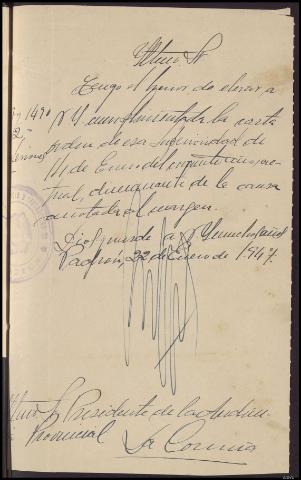 Iltmo Sr
Tengo el honor de elevar a
V Y cumplimentada la carta
orden de esa Superioridad de
14 de Enero del corriente año, ac-
tual, dimanante de la causa
anotada al margen.
Dios guarde a V Y muchos años
Padrón, 22 de Enero de 1947.
Iltmo Sr Presidente de la Audien
Provincial La Coruña